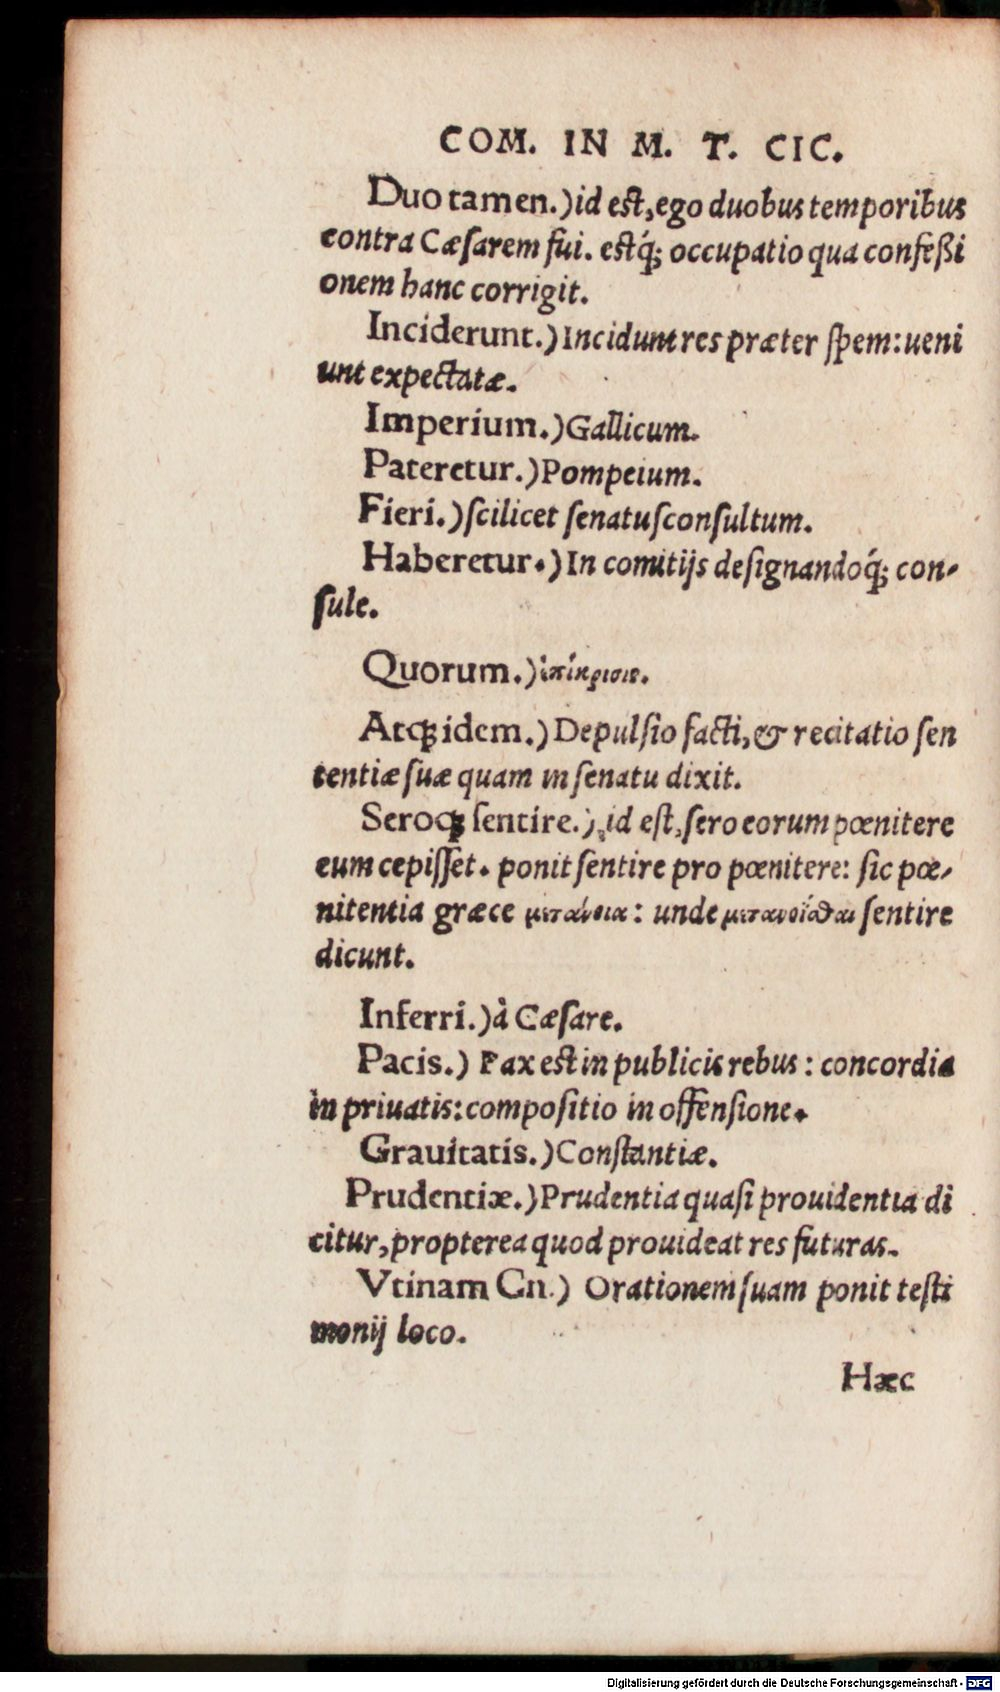 COM. IN M. T. CIC.
Duo tamen.) id est, ego duobus temporibus
contra Cæsarem fui. estq́; occupatio qua confeßi
onem hanc corrigit.
Inciderunt.) Incidunt res præter spem: ueni
unt expectatæ.
Imperium.) Gallicum.
Pateretur.) Pompeium.
Fieri.) scilicet senatusconsultum.
Haberetur.) In comitijs designandoq́; con-
sule.
Quorum.)
Atq; idem.) Depulsio facti, & recitatio sen
tentiæ suæ quam in senatu dixit.
Seroq; sentire.) id est, sero eorum pœnitere
eum cepisset. ponit sentire pro pœnitere: sic pœ-
nitentia græce μετάνοια: unde sentire
dicunt.
Inferri.) à Cæsare.
Pacis.) Pax est in publicis rebus: concordia
in priuatis: compositio in offensione.
Grauitatis.) Constantiæ.
Prudentiæ.) Prudentia quasi prouidentia di
citur, propterea quod prouideat res futuras.
Vtinam Cn.) Orationem suam ponit testi
monij loco.
Hæc
Digitalisierung gefördert durch die Deutsche Forschungsgemeinschaft - DFG